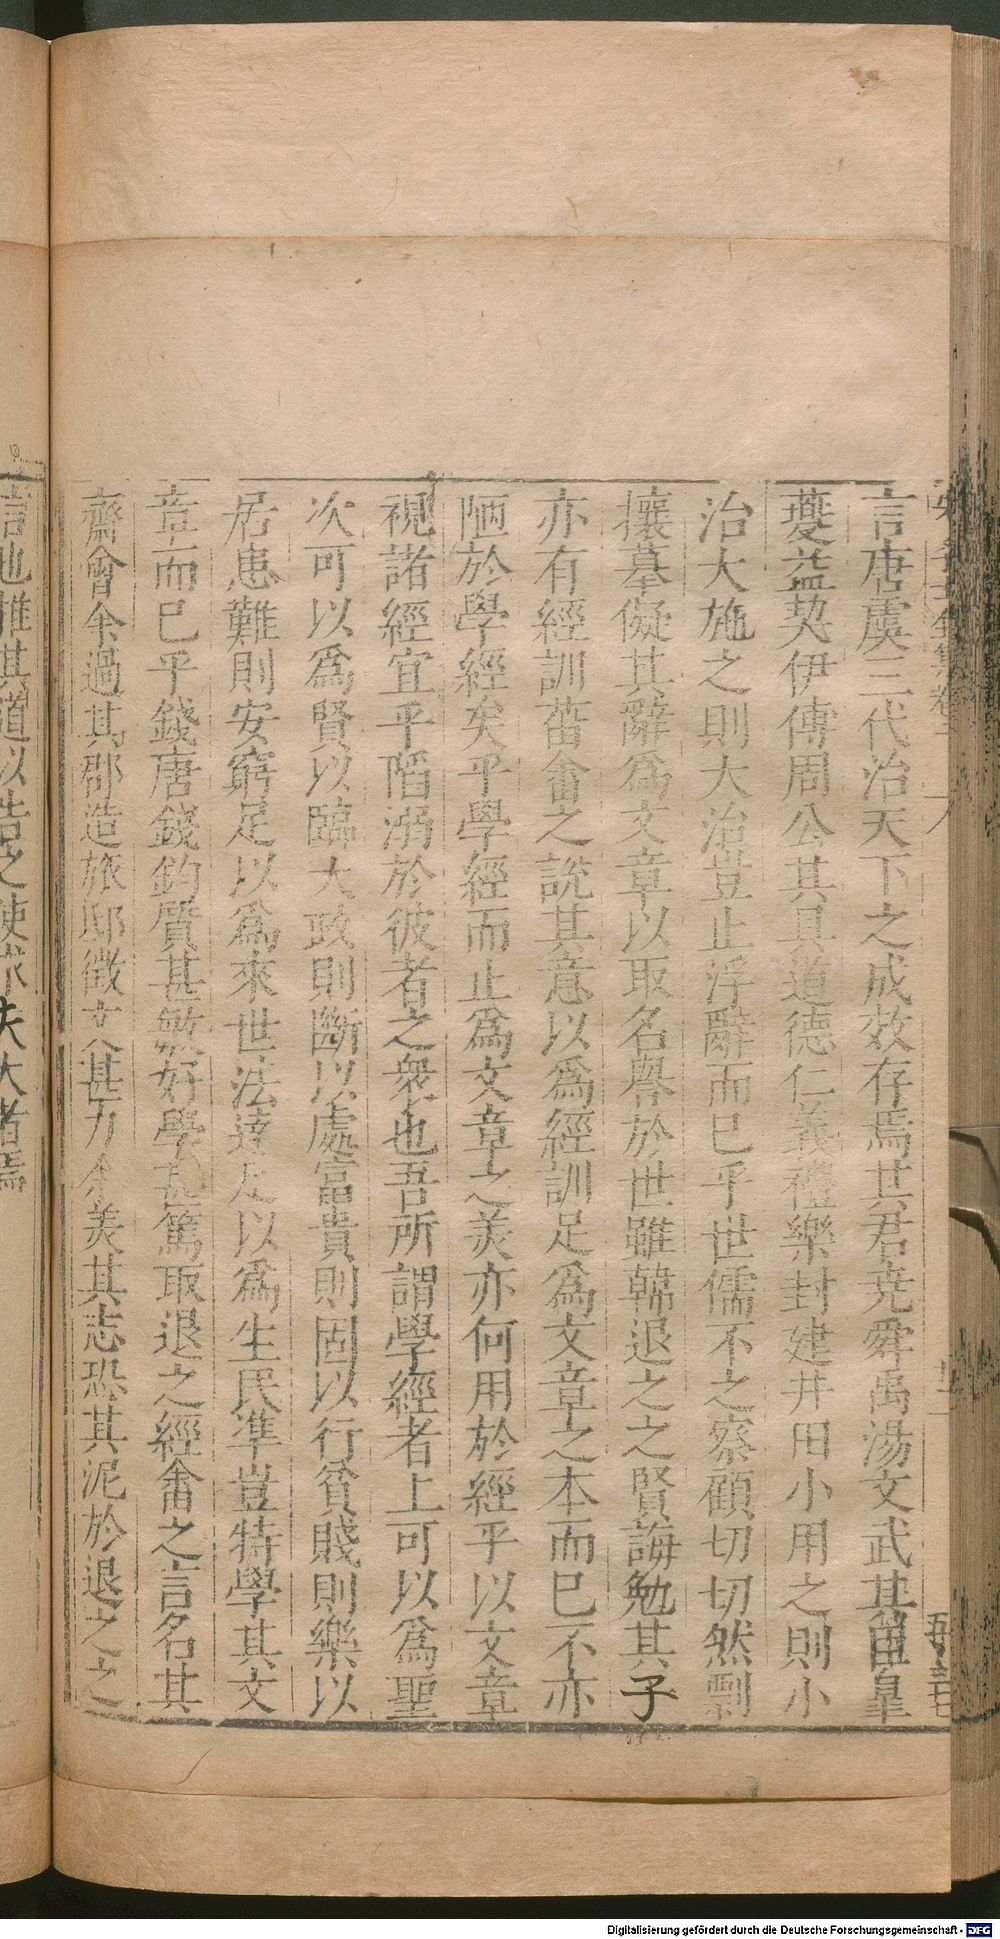 言唐虞三代治天下之成效存焉其君堯舜禹湯文武其臣皋
夔益契伊傅周公其具道德仁義禮樂封建井田小用之則小
治大施之則大治豈止浮辭而已乎世儒不之察顧切切然剽
攘摹儗其辭爲文章以取名譽於世雖韓退之之賢誨勉其子
亦有經訓菑畬之說其意以爲經訓足爲文章之本而已不亦
陋於學經矣乎學經而止爲文章之美亦何用於經乎以文章
視諸經宜乎陷溺於彼者之衆也吾所謂學經者上可以爲聖
次可以爲賢以臨大政則斷以處富貴則固以行貧賤則樂以
居患難則安窮足以爲來世法達足以爲生民準豈特學其文
章而已乎錢唐錢鈞質甚敏好學甚篤取退之經畬之言名其
齋會余過其郡造旅邸徵文甚力余美其志恐其泥於退之之
言也推其道以告之使求夫大者焉
Digitalisierung gefördert durch die Deutsche Forschungsgemeinschaft - DFG